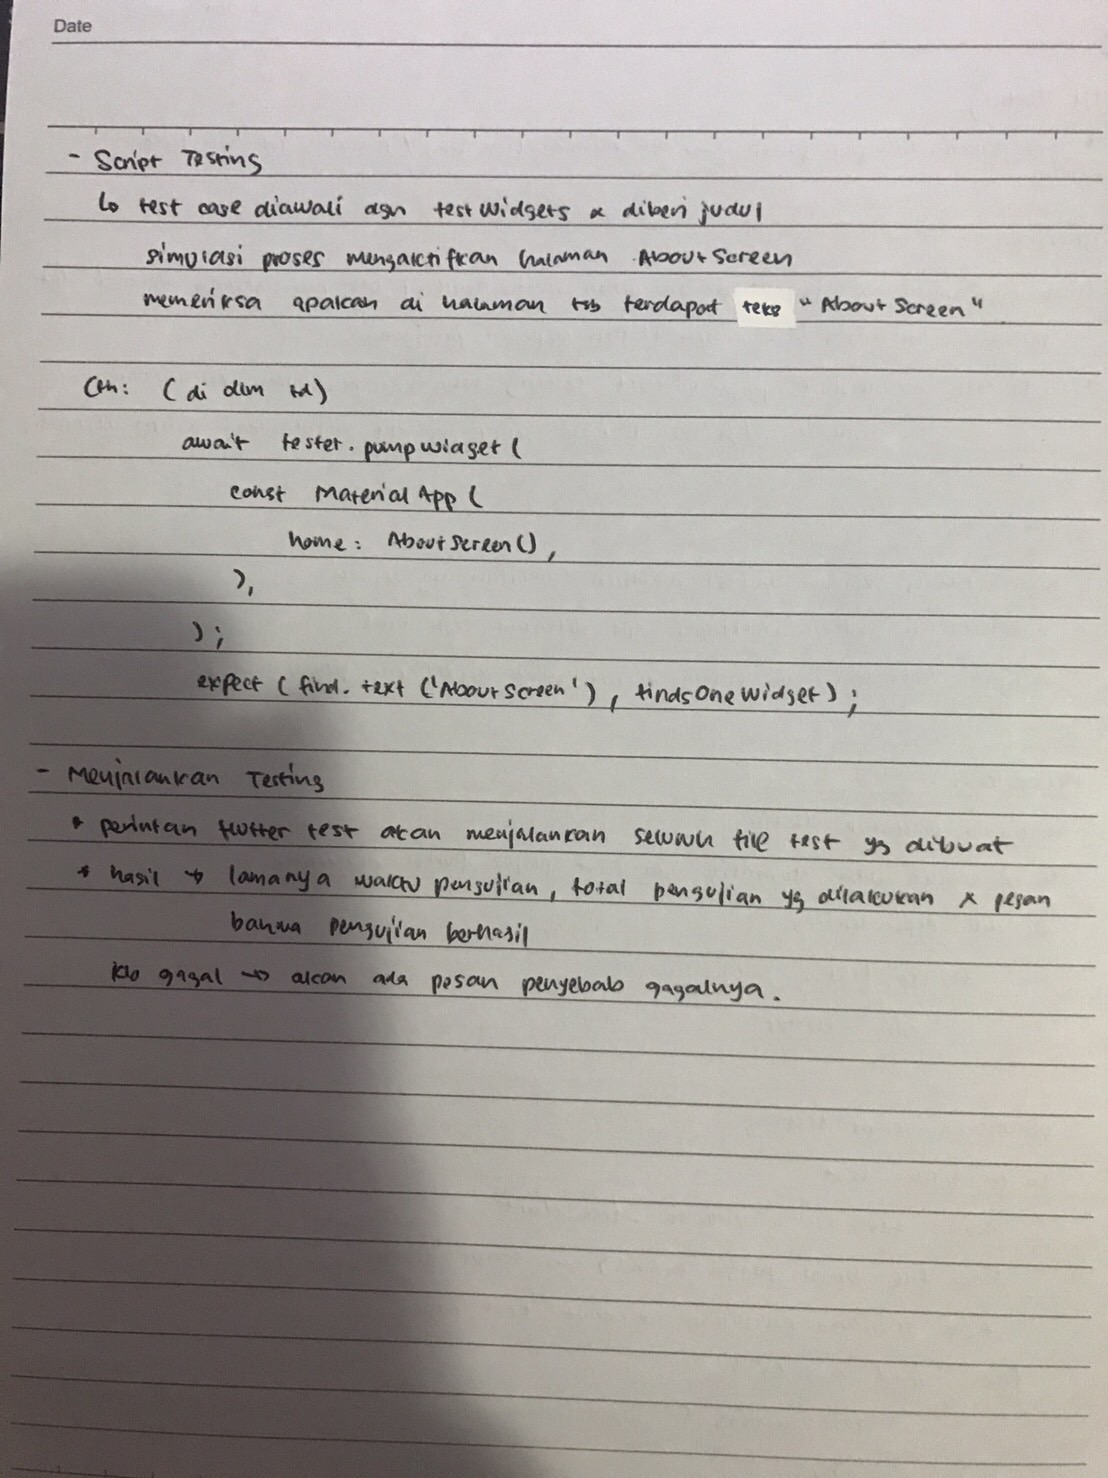 Date
- Script Testing
↳ test case diawali dgn testWidgets & diberi judul
simulasi proses mengaktifkan halaman AboutScreen
memeriksa apakah di halaman tsb terdapat teks "About Screen"
Cth: (di dlm td)
await tester.pumpWidget(
const MaterialApp(
home: AboutScreen(),
),
);
expect (find.text ('AboutScreen'), findsOneWidget);
- Menjalankan Testing
* perintah flutter test akan menjalankan seluruh file test yg dibuat
* hasil → lamanya waktu pengujian, total pengujian yg dilakukan & pesan
bahwa pengujian berhasil
klo gagal → akan ada pesan penyebab gagalnya.